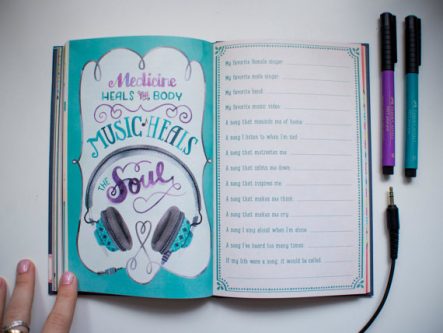 Medicine
HEALS THE BODY
MUSIC HEALS
THE Soul
My favorite female singer
My favorite male singer
My favorite band
My favorite music video
A song that reminds me of home
A song I listen to when I'm sad
A song that motivates me
A song that calms me down
A song that inspires me
A song that makes me think
A song that makes me cry
A song I sing aloud when I'm alone
A song I've heard too many times
If my life were a song, it would be called